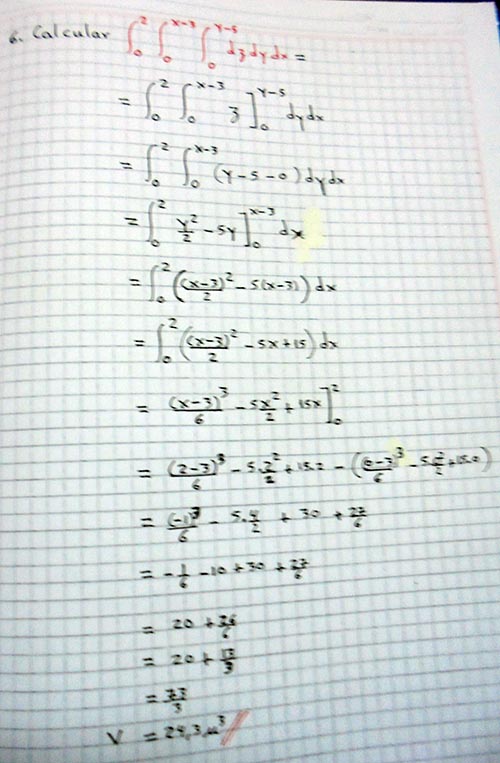 6. Calcular ∫₀² ∫₀^(x-3) ∫₀^(y-5) dz dy dx =
= ∫₀² ∫₀^(x-3) z ]₀^(y-5) dy dx
= ∫₀² ∫₀^(x-3) (y-5-0) dy dx
= ∫₀² y²/2 - 5y ]₀^(x-3) dx
= ∫₀² ((x-3)²/2 - 5(x-3)) dx
= ∫₀² ((x-3)²/2 - 5x+15) dx
= (x-3)³/6 - 5x²/2 + 15x ]₀²
= (2-3)³/6 - 5.2²/2 + 15.2 - ((0-3)³/6 - 5.0²/2 + 15.0)
= (-1)³/6 - 5.4/2 + 30 + 27/6
= -1/6 - 10 + 30 + 27/6
= 20 + 26/6
= 20 + 13/3
= 73/3
V = 24,3 u³